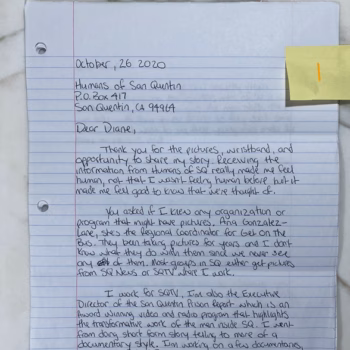 1
October, 26 2020
Humans of San Quentin
P.O. Box 417
San Quentin, CA 94964
Dear Diane,
Thank you for the pictures, wristband, and
opportunity to share my story. Receiving the
information from Humans of SQ really made me feel
human, not that I wasn't feeling human before but it
made me feel good to know that we're thought of.
You asked if I knew any organization or
program that might have pictures. Ana Gonzalez-
Lane, she's the Regional Coordinator for Get On The
Bus. They been taking pictures for years and I don't
know what they do with them since we never see
any of them. Most groups in SQ either get pictures
from SQ News or SQTV where I work.
I work for SQTV, I'm also the Executive
Director of the San Quentin Prison Report which is an
Award winning video and radio program that highlights
the transformative work of the men inside SQ. I went
from doing short form story telling to more of a
documentary style. I'm working on a few documentaries,